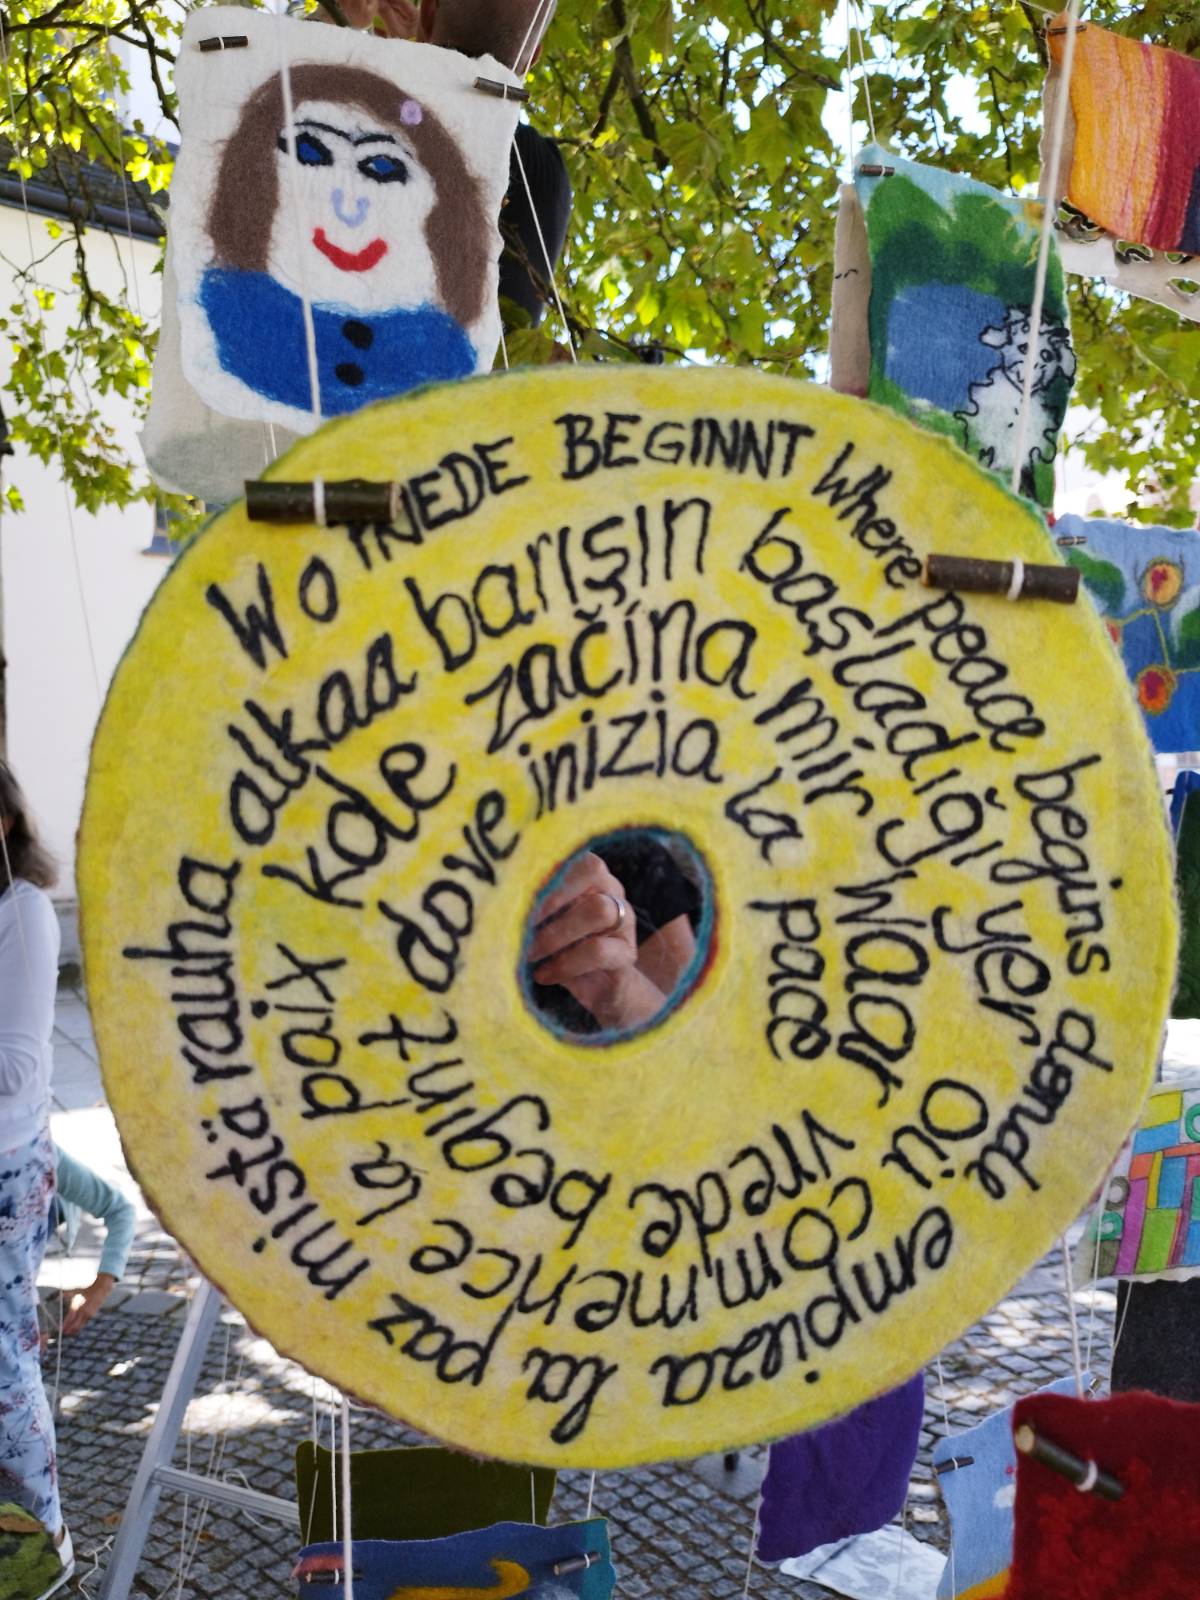 Wo FRIEDE BEGINNT
Where peace begins
donde empieza la paz
mistä rauha alkaa
barışın başladığı yer
Où commence la paix
kde začína mir
waar vrede begint
dove inizia la pace